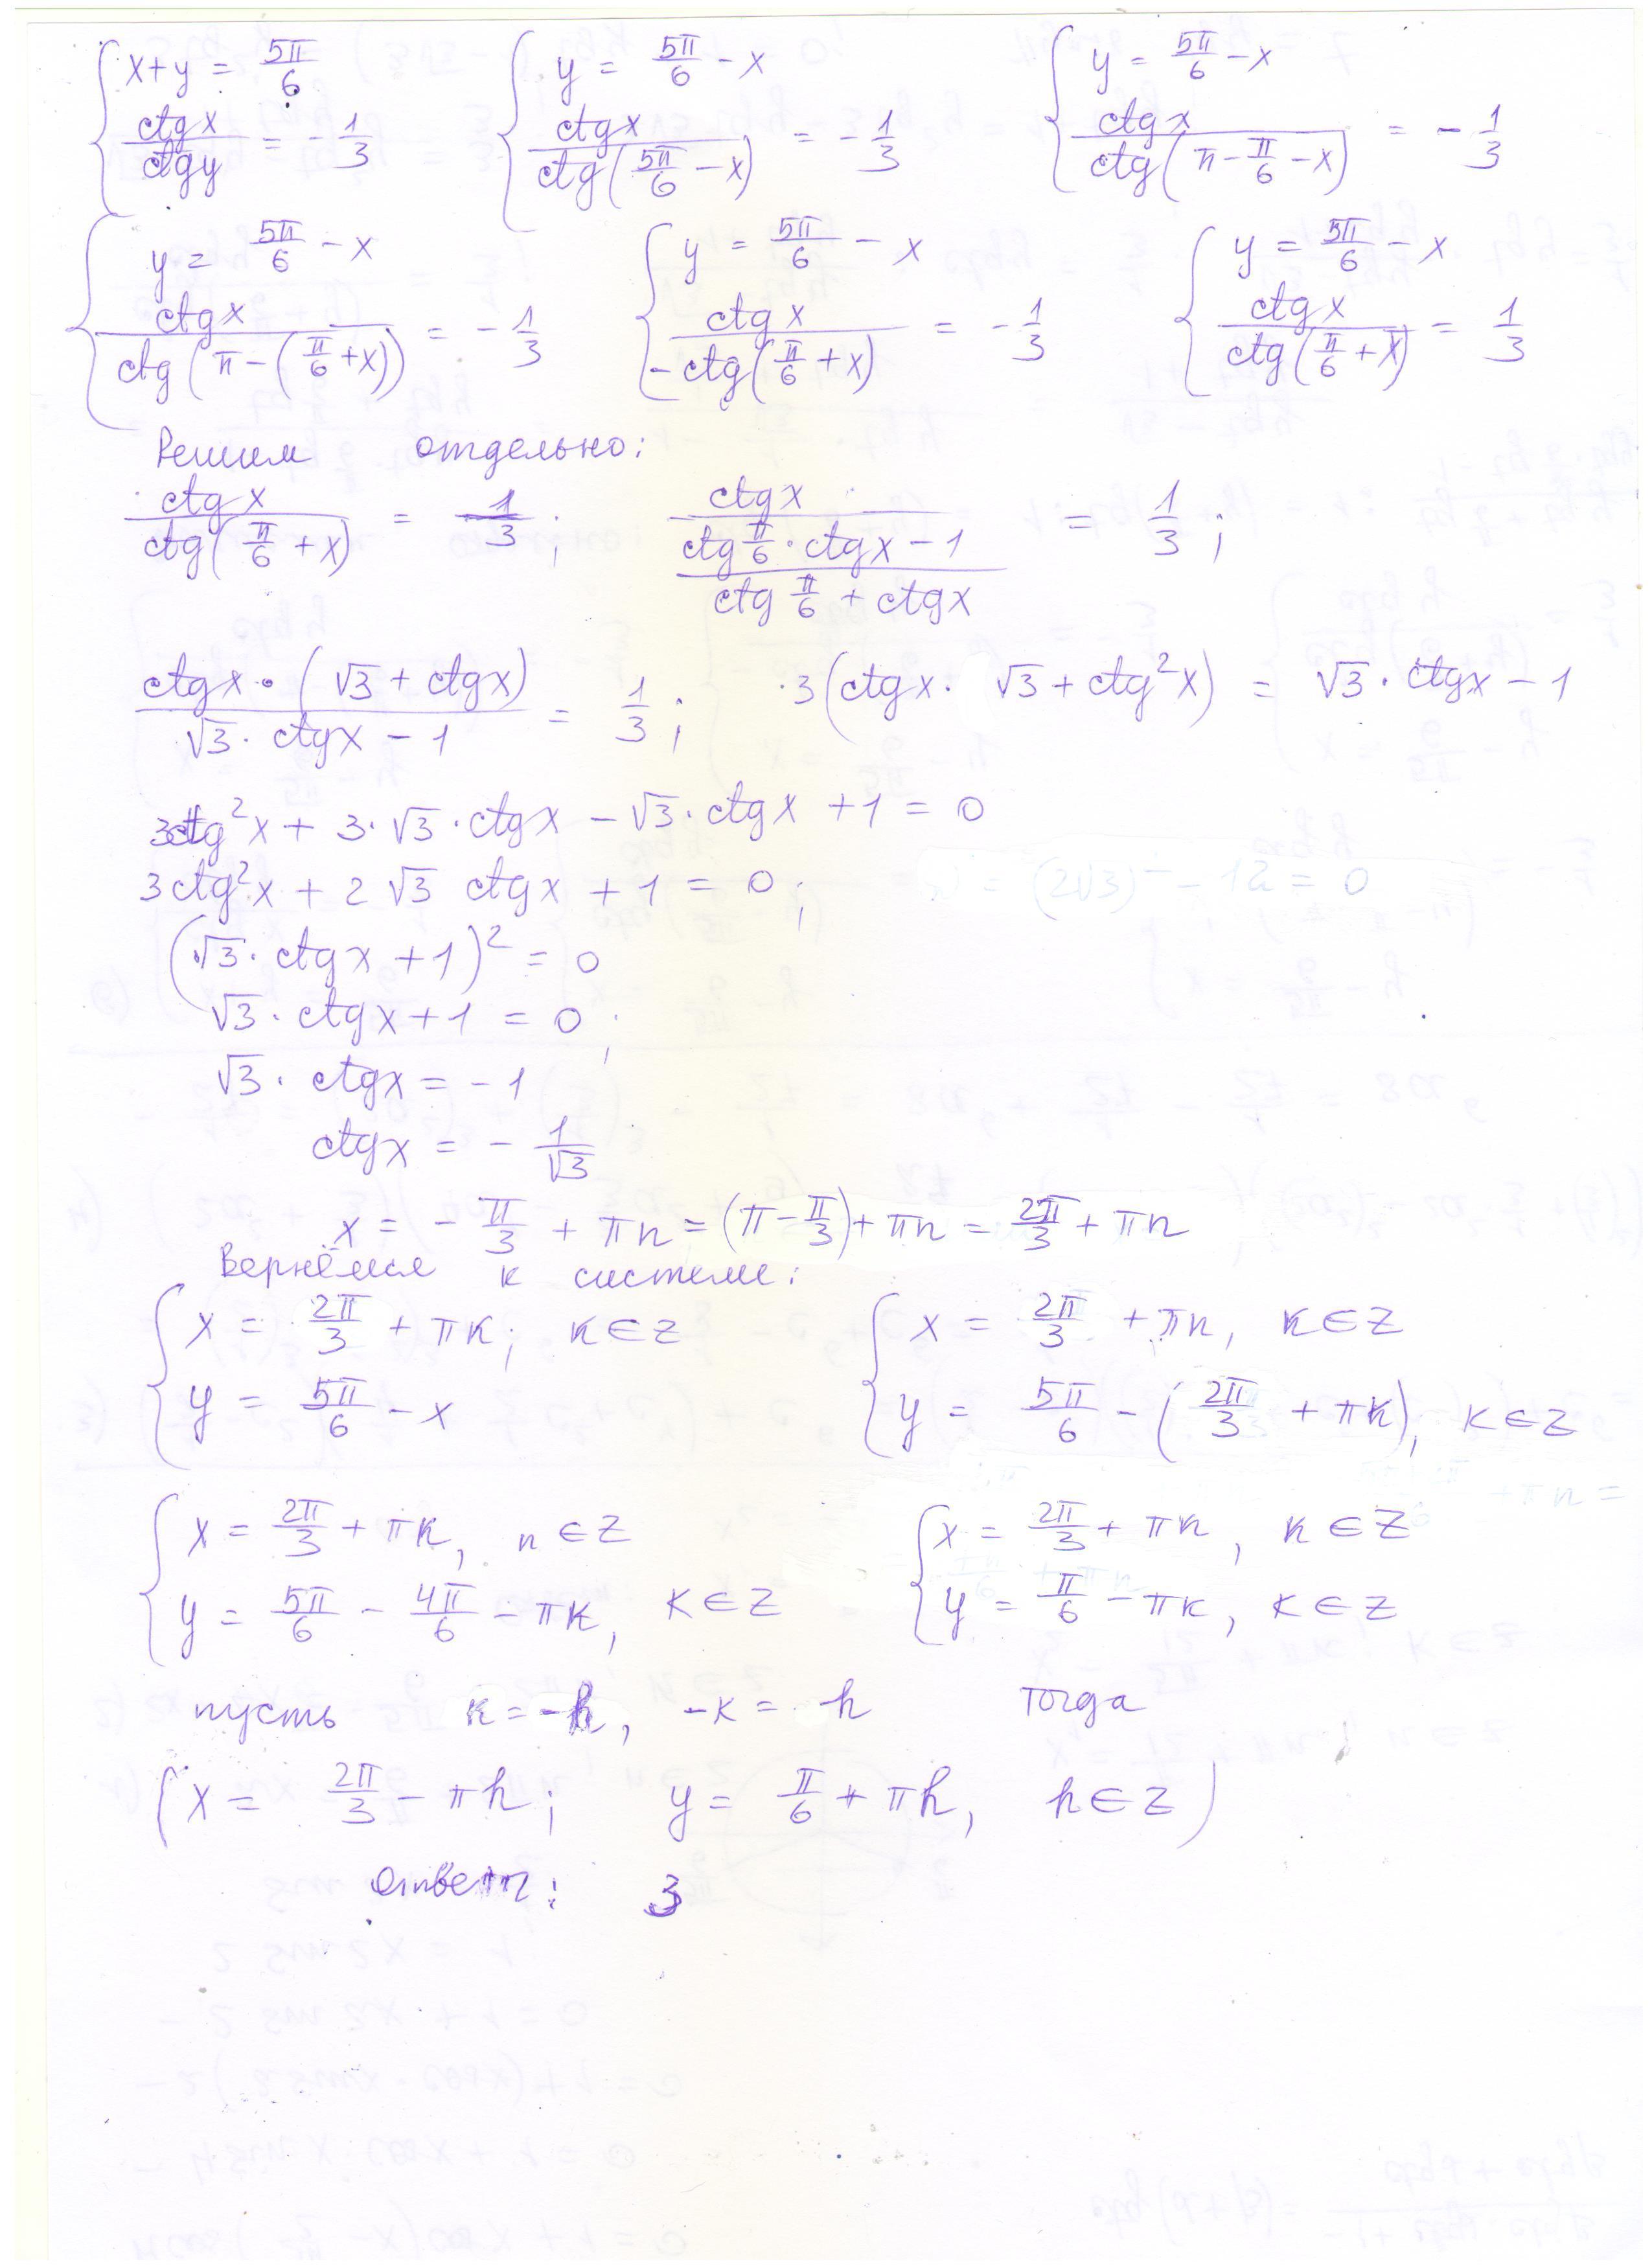 { x+y = 5π/6 ; ctgx/ctgy = -1/3   { y = 5π/6 - x ; ctgx/ctg(5π/6 - x) = -1/3   { y = 5π/6 - x ; ctgx/ctg(π - π/6 - x) = -1/3
{ y = 5π/6 - x ; ctgx/ctg(π-(π/6 + x)) = -1/3   { y = 5π/6 - x ; ctgx/-ctg(π/6 + x) = -1/3   { y = 5π/6 - x ; ctgx/ctg(π/6 + x) = 1/3
Решим отдельно:
ctgx/ctg(π/6 + x) = 1/3;   ctgx/((ctg π/6 · ctgx - 1)/(ctg π/6 + ctgx)) = 1/3;
ctgx·(√3 + ctgx)/(√3· ctgx - 1) = 1/3;   3(ctgx· √3 + ctg²x) = √3· ctgx - 1
3ctg²x + 3·√3·ctgx - √3·ctgx + 1 = 0
3ctg²x + 2√3 ctgx + 1 = 0;
(√3· ctgx + 1)² = 0
√3· ctgx + 1 = 0;
√3· ctgx = -1
ctgx = - 1/√3
x = - π/3 + πn = (π - π/3) + πn = 2π/3 + πn
Вернёмся к системе:
{ x = 2π/3 + πk; k∈Z ; y = 5π/6 - x   { x = 2π/3 + πn, k∈Z ; y = 5π/6 - (2π/3 + πk), k∈Z
{ x = 2π/3 + πk, n∈Z ; y = 5π/6 - 4π/6 - πk, k∈Z   { x = 2π/3 + πk, k∈Z ; y = π/6 - πk, k∈Z
пусть k = -h, -k = h тогда
(x = 2π/3 - πh; y = π/6 + πh, h∈Z)
Ответ: 3